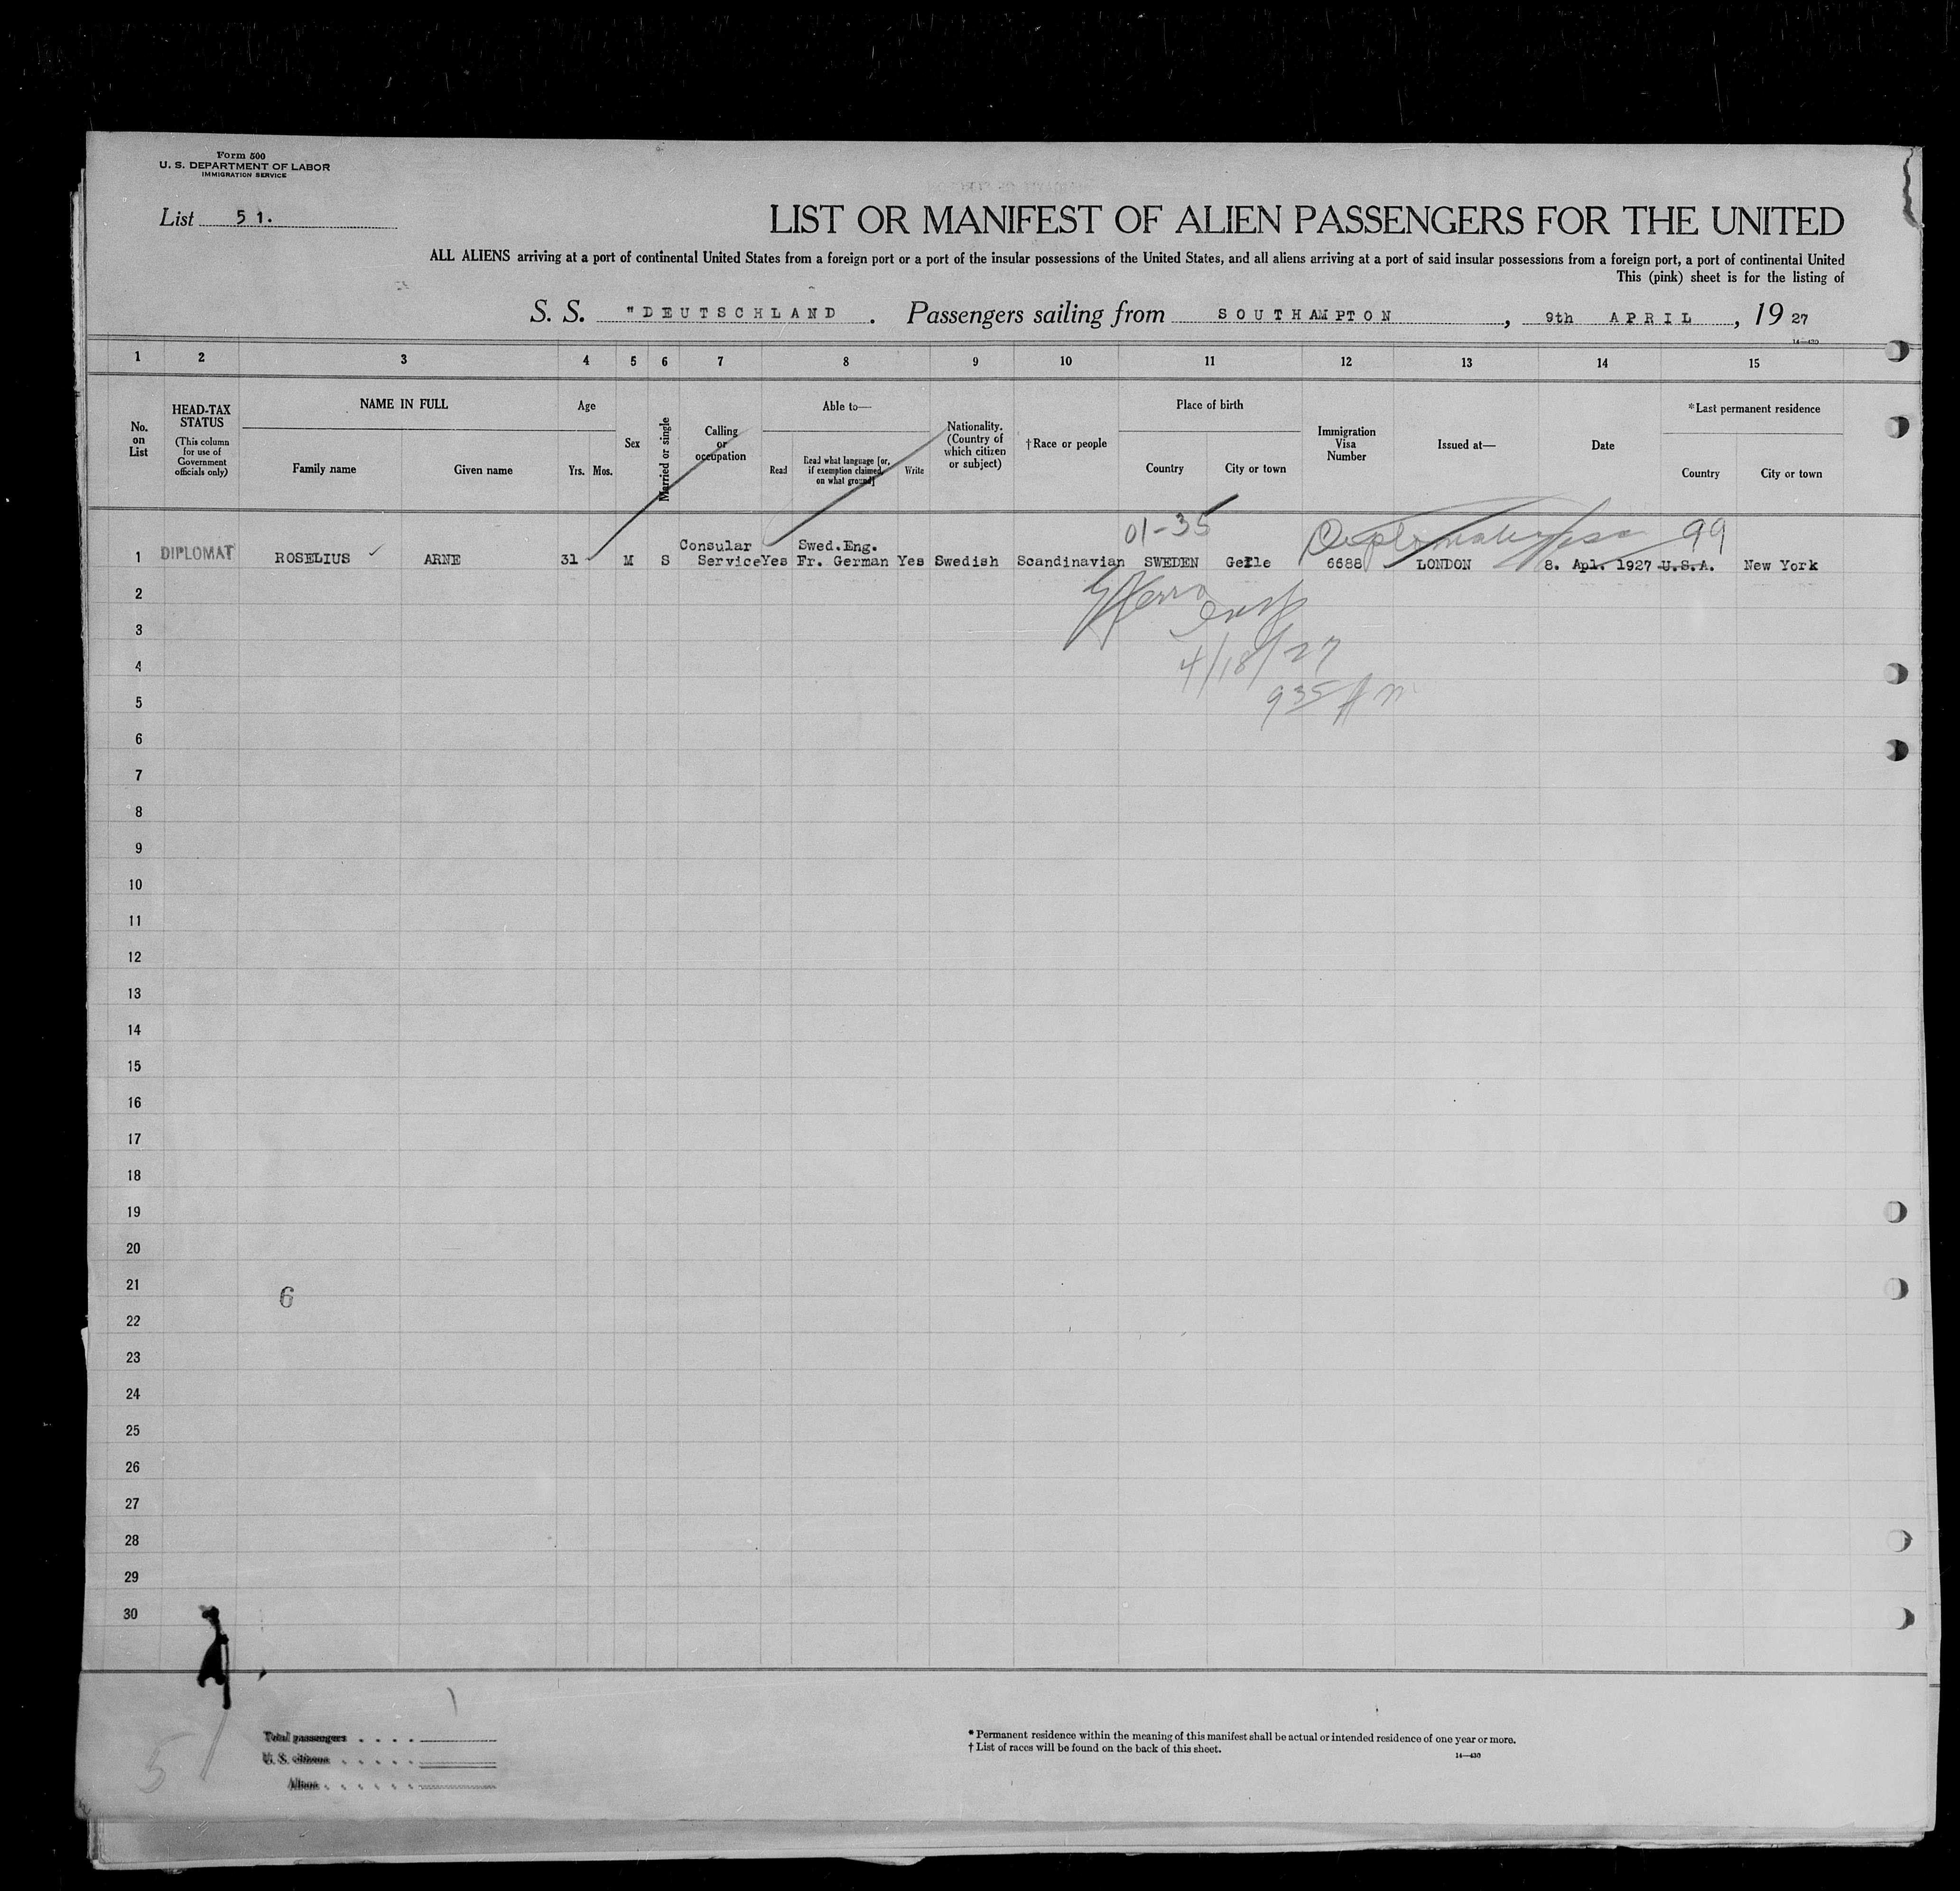 Form 500
U. S. DEPARTMENT OF LABOR
IMMIGRATION SERVICE
List 51.
LIST OR MANIFEST OF ALIEN PASSENGERS FOR THE UNITED
ALL ALIENS arriving at a port of continental United States from a foreign port or a port of the insular possessions of the United States, and all aliens arriving at a port of said insular possessions from a foreign port, a port of continental United
This (pink) sheet is for the listing of
S. S. "DEUTSCHLAND . Passengers sailing from SOUTHAMPTON, 9th APRIL, 19 27
14—430
1 2 3 4 5 6 7 8 9 10 11 12 13 14 15
No. on List
HEAD-TAX STATUS
(This column for use of Government officials only)
NAME IN FULL
Family name Given name
Age
Yrs. Mos.
Sex
Married or single
Calling or occupation
Able to—
Read
Read what language [or, if exemption claimed, on what ground]
Write
Nationality. (Country of which citizen or subject)
†Race or people
Place of birth
Country City or town
Immigration Visa Number
Issued at—
Date
*Last permanent residence
Country City or town
01-35 99
1 DIPLOMAT ROSELIUS ARNE 31 M S Consular Service Yes Swed.Eng. Fr. German Yes Swedish Scandinavian SWEDEN 6688 LONDON 8. Apl. 1927 U.S.A. New York
2
3
4/18/27
4
5
9 35 AM
6
7
8
9
10
11
12
13
14
15
16
17
18
19
20
21
6
22
23
24
25
26
27
28
29
30
51
Total passengers
U. S. citizens
Aliens
* Permanent residence within the meaning of this manifest shall be actual or intended residence of one year or more.
† List of races will be found on the back of this sheet.
14—430